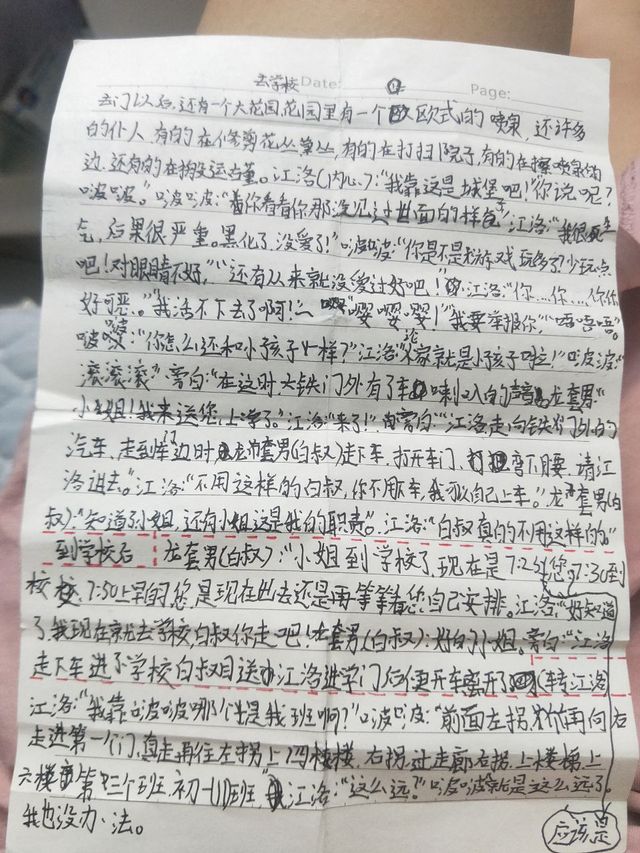 去学校 Date: Page:
去门以后,还有一个大花园,花园里有一个欧式的喷泉,还许多
的仆人,有的在修剪花丛草丛,有的在打扫院子,有的在擦喷泉的
边,还有的在搬运古董。江洛(内心):“我靠这是城堡吧!你说呢?
啵啵”。啵啵:“看你看看你那没见过世面的样子”江洛:“我很生
气,后果很严重。黑化了,没爱了!”啵啵:“你是不是游戏玩多了!少玩点
吧!对眼睛不好,”“还有从来就没爱过好吧!”江洛:“你…你…你
好可恶。”“我活不下去了啊!”“嘤嘤嘤!”“我要举报你,”“唔唔唔。”
啵啵:“你怎么还和小孩子一样?”江洛:“人家就是小孩子啦!”啵啵:
“滚滚滚”旁白:“在这时,大铁门外有了车喇叭的声音,龙套男:“
小姐!我来送您,上学了。”江洛:“来了!”旁白:“江洛走向铁门外的
汽车,走到车门边时,龙套男(白叔)走下车,打开车门,弯下腰,请江
洛进去。”江洛:“不用这样的白叔,你不用下车,我可以自己上车。”龙套男(白
叔):“知道了小姐,还有小姐这是我的职责”。江洛:“白叔真的不用这样的”
到学校后 龙套男(白叔):“小姐到学校了,现在是7:25您7:30到
校,7:50上早自习您是现在进去还是再等等看您自己安排。江洛:“好知道
了,我现在就去学校,白叔你走吧!龙套男(白叔):好的小姐。旁白:“江洛
走下车进了学校白叔目送江洛进学门后便开车离开了(转江洛
江洛:“我靠啵啵哪个是我班啊?”啵啵:“前面左拐,你再向右
走进第一个门,直走再往左拐上四楼,右拐过走廊右拐,上楼梯,上
六楼第三个班,初一(1)班”江洛:“这么远?”啵啵就是这么远了。
我也没办法。
应该是